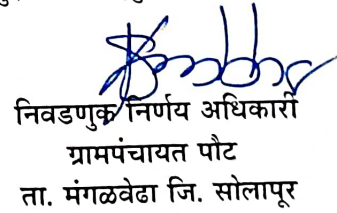 निवडणुक निर्णय अधिकारी
ग्रामपंचायत पौट
ता. मंगळवेढा जि. सोलापूर